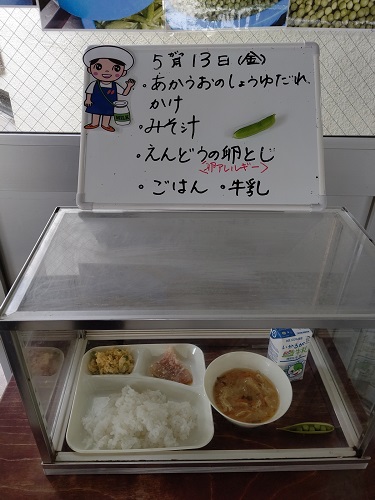 5月13日(金)
・あかうおのしょうゆだれ
かけ
・みそ汁
・えんどうの卵とじ
<卵アレルギー>
・ごはん ・牛乳